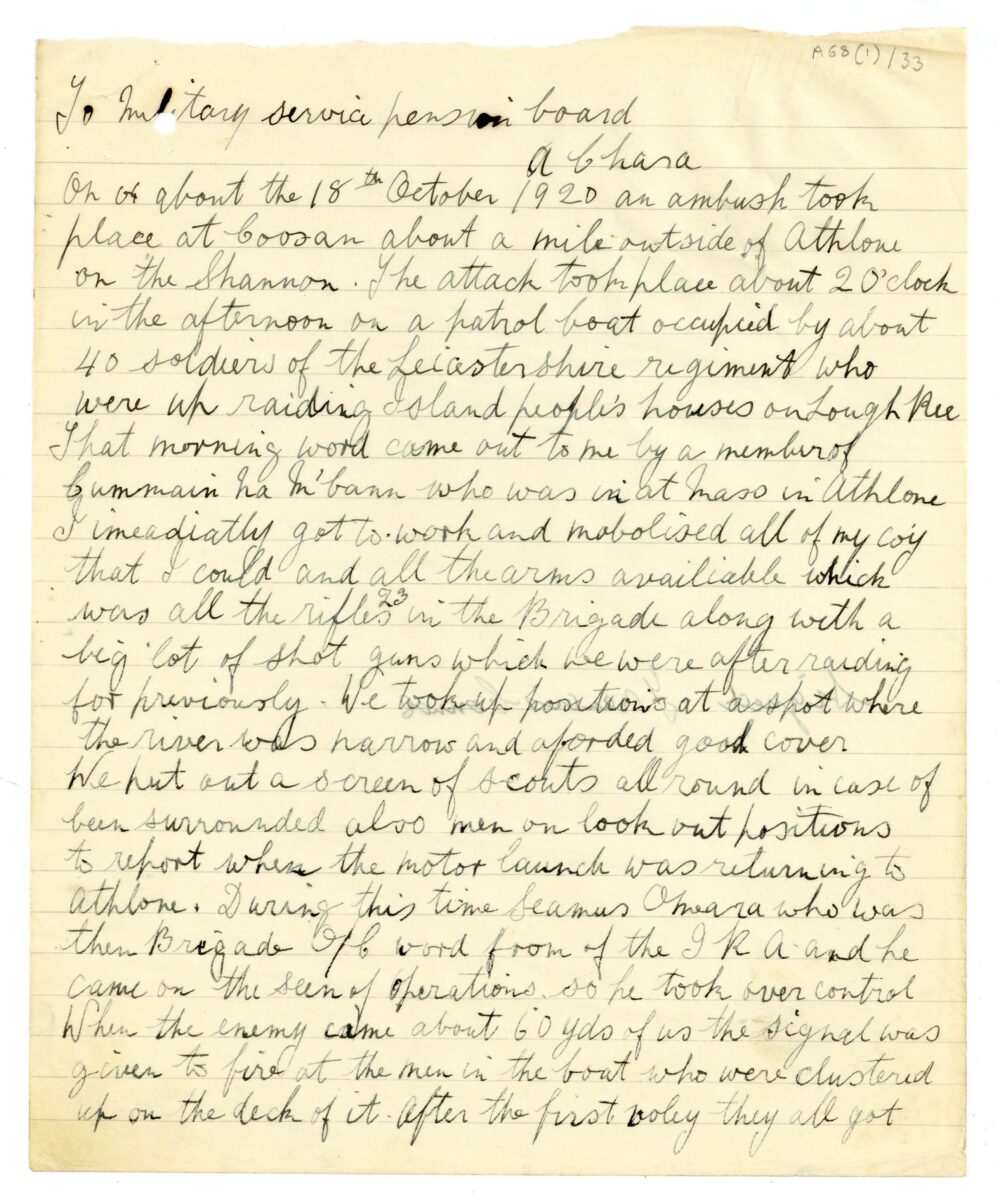 A68(1)/33
To Military service pension board
A Chara
On or about the 18th October 1920 an ambush took
place at Coosan about a mile outside of Athlone
on the Shannon. The attack took place about 2 O'clock
in the afternoon on a patrol boat occupied by about
40 soldiers of the Leicestershire regiment who
were up raiding Island people's houses on Lough Ree
That morning word came out to me by a member of
Cummain na M'bann who was in at Mass in Athlone
I imeadiatly got to work and mobolised all of my coy
that I could and all the arms availiable which
was all the rifles 23 in the Brigade along with a
big lot of shot guns which we were after raiding
for previously. We took up positions at a spot where
the river was narrow and aforded good cover
We put out a screen of scouts all round in case of
been surrounded also men on look out positions
to report when the motor launch was returning to
Athlone. During this time Seamus Omeara who was
then Brigade O/C word from of the I R A and he
came on the seen of operations so he took over control
When the enemy came about 60 yds of us the signal was
given to fire at the men in the boat who were clustered
up on the deck of it. After the first voley they all got